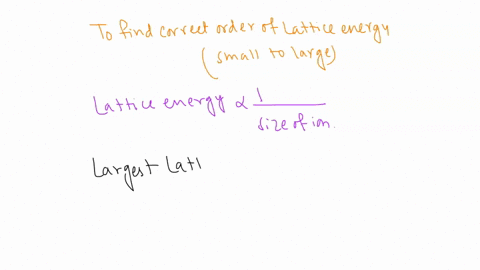 To find correct order of Lattice energy
(small to large)
Lattice energy ∝ 1
size of ion.
Largest Latt